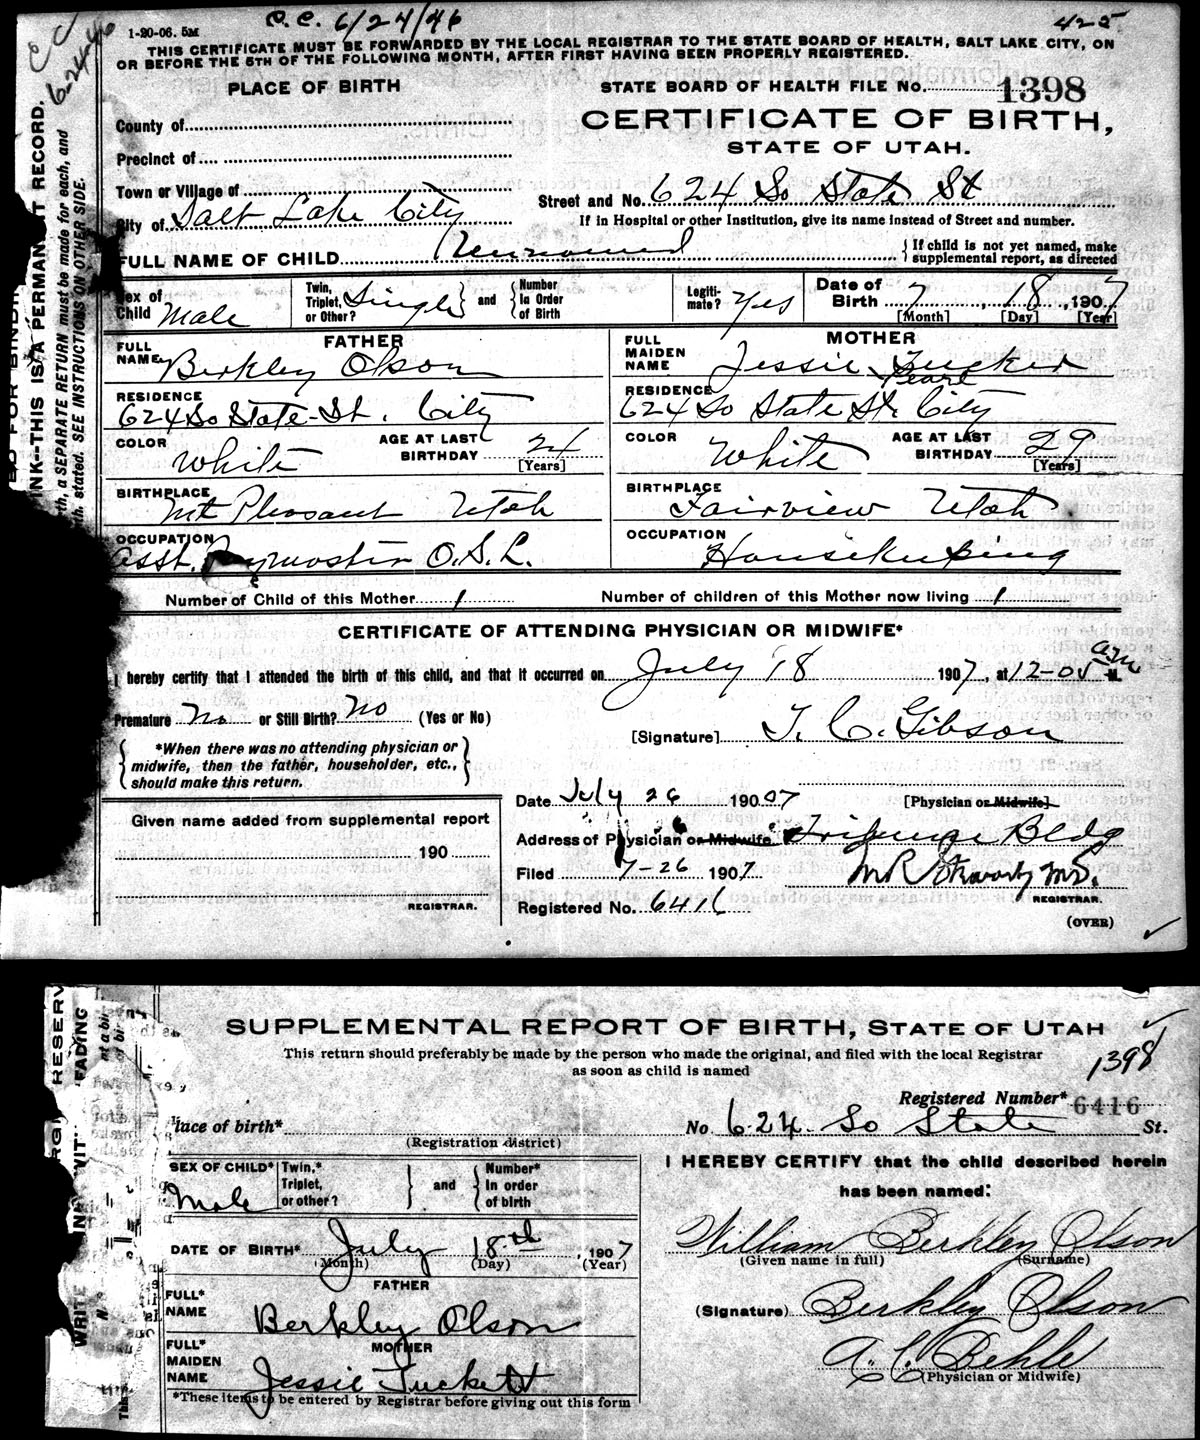 C.C. 6/24/46
425
CC
6-24-46
1-20-06. 5M
THIS CERTIFICATE MUST BE FORWARDED BY THE LOCAL REGISTRAR TO THE STATE BOARD OF HEALTH, SALT LAKE CITY, ON
OR BEFORE THE 5TH OF THE FOLLOWING MONTH, AFTER FIRST HAVING BEEN PROPERLY REGISTERED.
PLACE OF BIRTH
STATE BOARD OF HEALTH FILE No. 1398
CERTIFICATE OF BIRTH,
STATE OF UTAH.
County of
Precinct of
Town or Village of
City of Salt Lake City
Street and No. 624 So State St
If in Hospital or other Institution, give its name instead of Street and number.
FULL NAME OF CHILD Unnamed
If child is not yet named, make
supplemental report, as directed
Sex of Child Male
Twin, Triplet, or Other? Single and Number In Order of Birth
Legitimate? Yes
Date of Birth 7, 18, 1907
[Month] [Day] [Year]
FATHER
FULL NAME Berkley Olson
RESIDENCE 624 So State St. City
COLOR White AGE AT LAST BIRTHDAY 24 [Years]
BIRTHPLACE Mt Pleasant Utah
OCCUPATION Asst. Paymaster O.S.L.
MOTHER
FULL MAIDEN NAME Jessie Tucker
Pearl
RESIDENCE 624 So State St. City
COLOR White AGE AT LAST BIRTHDAY 29 [Years]
BIRTHPLACE Fairview Utah
OCCUPATION Housekeeping
Number of Child of this Mother 1 Number of children of this Mother now living 1
CERTIFICATE OF ATTENDING PHYSICIAN OR MIDWIFE*
I hereby certify that I attended the birth of this child, and that it occurred on July 18 1907, at 12-05 a.m M.
Premature No or Still Birth? No (Yes or No)
[Signature] T. C. Gibson
*When there was no attending physician or
midwife, then the father, householder, etc.,
should make this return.
Date July 26 190 07 [Physician or Midwife]
Given name added from supplemental report
190
REGISTRAR.
Address of Physician or Midwife Tribune Bldg
Filed 7-26 1907
REGISTRAR.
Registered No. 6416
(OVER)
INK--THIS IS A PERMANENT RECORD.
a SEPARATE RETURN must be made for each, and
stated. SEE INSTRUCTIONS ON OTHER SIDE.
SUPPLEMENTAL REPORT OF BIRTH, STATE OF UTAH
This return should preferably be made by the person who made the original, and filed with the local Registrar
as soon as child is named
1398
Registered Number* 6416
lace of birth*
(Registration district)
No. 624 So State St.
SEX OF CHILD* Male
Twin,* Triplet, or other? and Number* In order of birth
DATE OF BIRTH* July 18th, 1907
(Month) (Day) (Year)
FATHER
FULL* NAME Berkley Olson
MOTHER
FULL* MAIDEN NAME Jessie Tuckett
*These items to be entered by Registrar before giving out this form
I HEREBY CERTIFY that the child described herein
has been named:
William Berkley Olson
(Given name in full) (Surname)
(Signature) Berkley Olson
A. C. Behle
(Physician or Midwife)